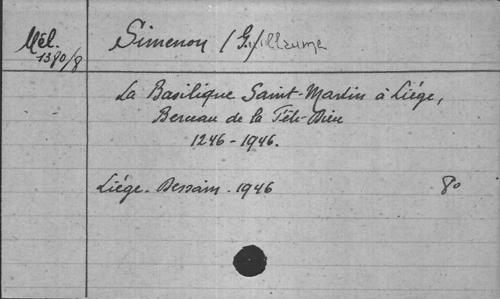 Mél.
1380/8
Simenon (G.)uillaume
La Basilique Saint-Martin à Liége,
Berceau de la Fête-Dieu
1246-1946.
Liége. Dessain. 1946
8º